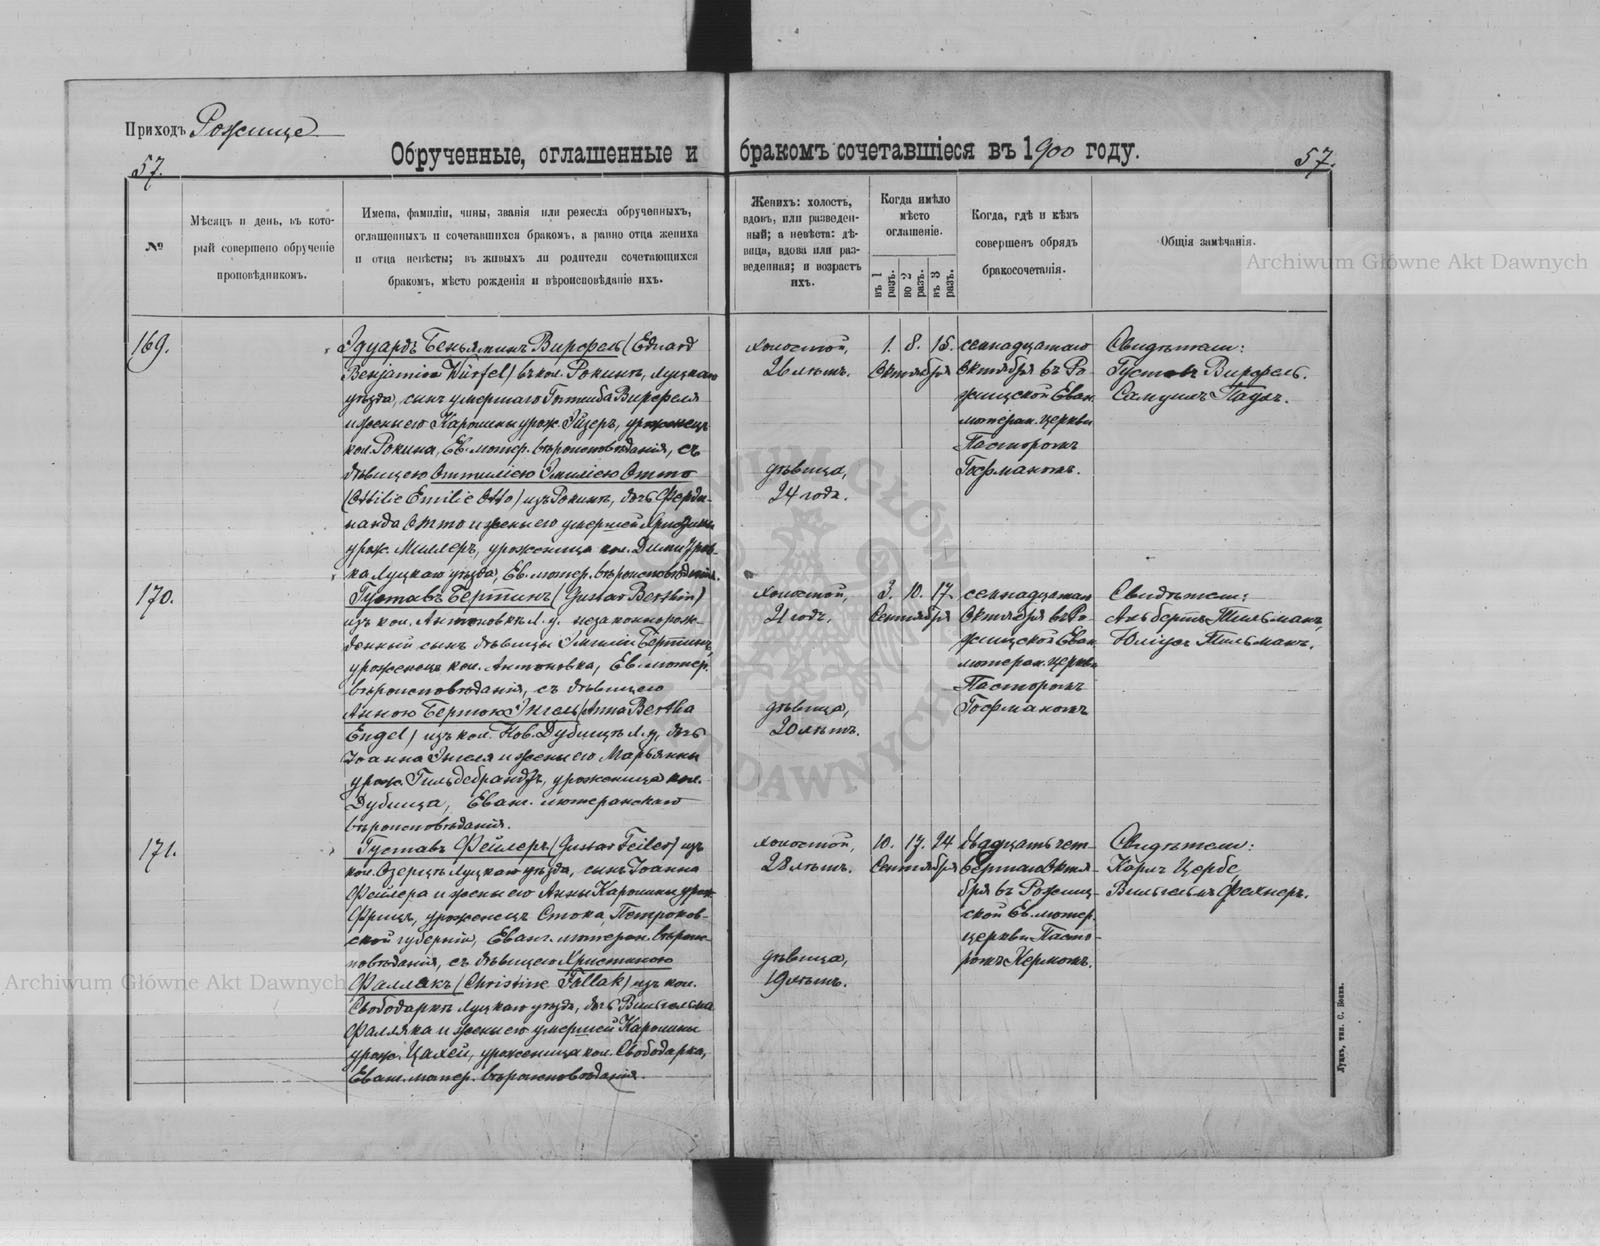 Приходъ Рожище
57.
Обрученные, оглашенные и бракомъ сочетавшіеся въ 1900 году.
57.
№
Мѣсяцъ и день, въ кото-
рый совершено обрученіе
проповѣдникомъ.
Имена, фамиліи, чины, званія или ремесла обрученныхъ,
оглашенныхъ и сочетавшихся бракомъ, а равно отца жениха
и отца невѣсты; въ живыхъ ли родители сочетающихся
бракомъ, мѣсто рожденія и вѣроисповѣданіе ихъ.
Женихъ: холостъ,
вдовъ, или разведен-
ный; а невѣста: дѣ-
вица, вдова или раз-
веденная; и возрастъ
ихъ.
Когда имѣло
мѣсто
оглашеніе.
въ 1 разъ.
во 2 разъ.
въ 3 разъ.
Когда, гдѣ и кѣмъ
совершенъ обрядъ
бракосочетанія.
Общія замѣчанія.
Archiwum Główne Akt Dawnych
169.
Эдуардъ Беньяминъ Вирфель (Eduard
Benjamin Würfel) въ кол. Рокинъ, Луцкаго
уѣзда, сынъ умершаго Готлиба Вирфеля
и жены его Каролины урож. Эйзеръ, уроженецъ
кол. Рокина, Ев. лютер. вѣроисповѣданія, съ
дѣвицею Оттиліею Эмиліею Отто
(Ottilie Emilie Otto) изъ Рокинъ, дочь Ферди-
нанда Отто и жены его умершей
урож. Миллеръ, уроженица кол.
ка Луцкаго уѣзда, Ев. лютер. вѣроисповѣданія.
холостой,
26 лѣтъ.
дѣвица,
24 года.
1. 8. 15.
Октября
семнадцатаго
Октября въ Ро-
жищской Еван.
лютеран. церкви
Пасторомъ
Гофманомъ.
Свидѣтели:
Густавъ Вирфель.
Самуилъ Пауль.
170.
Густавъ Бертинъ (Gustav Berthin)
изъ кол. Антоновкъ Л. у. незаконнорож-
денный сынъ дѣвицы Эмиліи Бертинъ,
уроженецъ кол. Антоновка, Ев. лютер.
вѣроисповѣданія, съ дѣвицею
Анною Бертою Энгель (Anna Bertha
Engel) изъ кол. Нов. Дубищъ Л. у. дочь
Іоанна Энгеля и жены его Марьянны
урож. Гильдебрандъ, уроженица кол.
Дубища, Еван. лютеранскаго
вѣроисповѣданія.
холостой,
21 годъ,
дѣвица,
20 лѣтъ.
3. 10. 17.
Сентября
семнадцатаго
Октября въ Ро-
жищской Еван.
лютеран. церкви
Пасторомъ
Гофманомъ
Свидѣтели:
Альбертъ Тильманъ,
Юліусъ Тильманъ.
171.
Густавъ Фейлеръ (Gustav Feiler) изъ
кол. Озерцъ Луцкаго уѣзда, сынъ Іоанна
Фейлера и жены его Анны Каролины урож.
Фрицъ, уроженецъ Стока Петроков-
ской губерніи, Еван. лютеран. вѣроис-
повѣданія, съ дѣвицею Христиною
Фаллакъ (Christine Fallak) изъ кол.
Свободаркъ Луцкаго уѣзда, дочь Вильгельма
Фалляка и жены его умершей Каролины
урож. Цилей, уроженица кол. Свободарка,
Еван. лютер. вѣроисповѣданія.
холостой,
28 лѣтъ.
дѣвица,
19 лѣтъ.
10. 17. 24
Сентября
двадцать чет-
вертаго Октя-
бря въ Рожищ-
ской Ев. лютер.
церкви Пасто-
ромъ Кермомъ.
Свидѣтели:
Карлъ Цербе,
Вильгельмъ Фехнеръ.
Archiwum Główne Akt Dawnych
Луцкъ, тип. С. Іонаса.